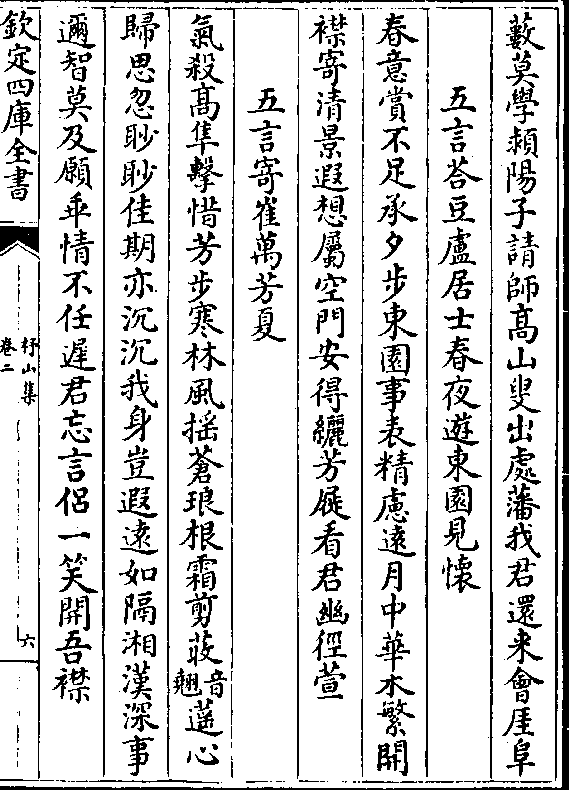 藪莫學潁陽子請師高山叟出處藩我君還来會厓阜
五言荅豆盧居士春夜遊東園見懷
春意賞不足承夕步東園事表精慮遠月中華木繁開
襟寄清景遐想屬空門安得纚芳屣看君幽徑萱
五言寄崔萬芳夏
氣殺髙隼擊惜芳步寒林風摇蒼琅根霜剪荍音翹薳心
歸思忽眇眇佳期亦沉沉我身豈遐遠如隔湘漢深事
邇智莫及願乖情不任遲君忘言侣一笑開吾襟
欽定四庫全書
杼山集
卷二
六